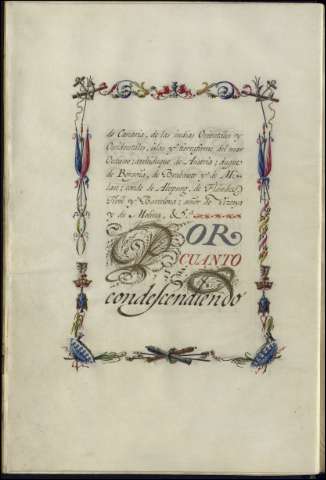 de Canaria, de las Indias Orientales y
Occidentales, islas y tierrafirme del mar
Océano; archiduque de Austria; duque
de Borgoña, de Brabante y de Mi-
lan; conde de Abspurg, de Flandes,
Tirol y Barcelona; señor de Vizcaya
y de Molina, &c.
POR
CUANTO
condescendiendo